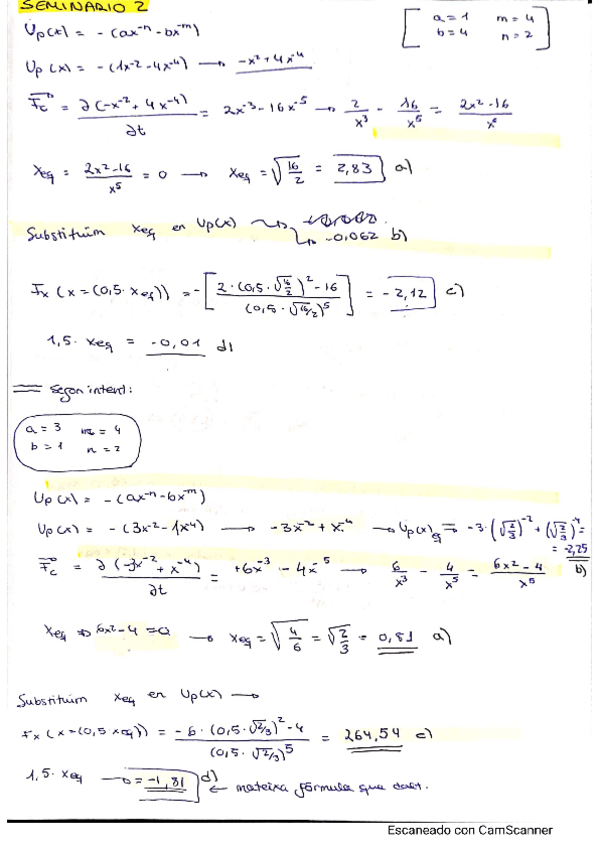 SEMINARIO 2
Up(x) = - (ax⁻ⁿ - bx⁻ᵐ)
[ a = 1 m = 4
b = 4 n = 2 ]
Up (x) = - (1x⁻² - 4x⁻⁴) → -x⁻² + 4x⁻⁴
Fc = ∂(-x⁻² + 4x⁻⁴)/∂t = 2x⁻³ - 16x⁻⁵ → 2/x³ - 16/x⁵ = 2x² - 16/x⁵
xeq = 2x² - 16/x⁵ = 0 → xeq = √16/2 = 2,83 a)
Substituïm xeq en Up(x) → -0,062 b)
Fx (x = (0,5 · xeq)) = - [2 · (0,5 · √16/2)² - 16/(0,5 · √16/2)⁵] = - 2,12 c)
1,5 · xeq = -0,01 d)
Segon intent:
a = 3 m = 4
b = 1 n = 2
Up(x) = - (ax⁻ⁿ - bx⁻ᵐ)
Up(x) = - (3x⁻² - 1x⁴) → -3x⁻² + x⁻⁴ → Up(x)eq = -3 · (√2/3)⁻² + (√2/3)⁻⁴ =
= -2,25
b)
Fc = ∂(-3x⁻² + x⁻⁴)/∂t = +6x⁻³ - 4x⁻⁵ → 6/x³ - 4/x⁵ = 6x² - 4/x⁵
xeq ⇒ 6x² - 4 = 0 → xeq = √4/6 = √2/3 = 0,81 a)
Substituïm xeq en Up(x) →
Fx (x = (0,5 xeq)) = - 6 · (0,5 · √2/3)² - 4/(0,5 · √2/3)⁵ = 264,54 c)
1,5 · xeq → = -1,81 d) ← mateixa fórmula que dalt.
Escaneado con CamScanner